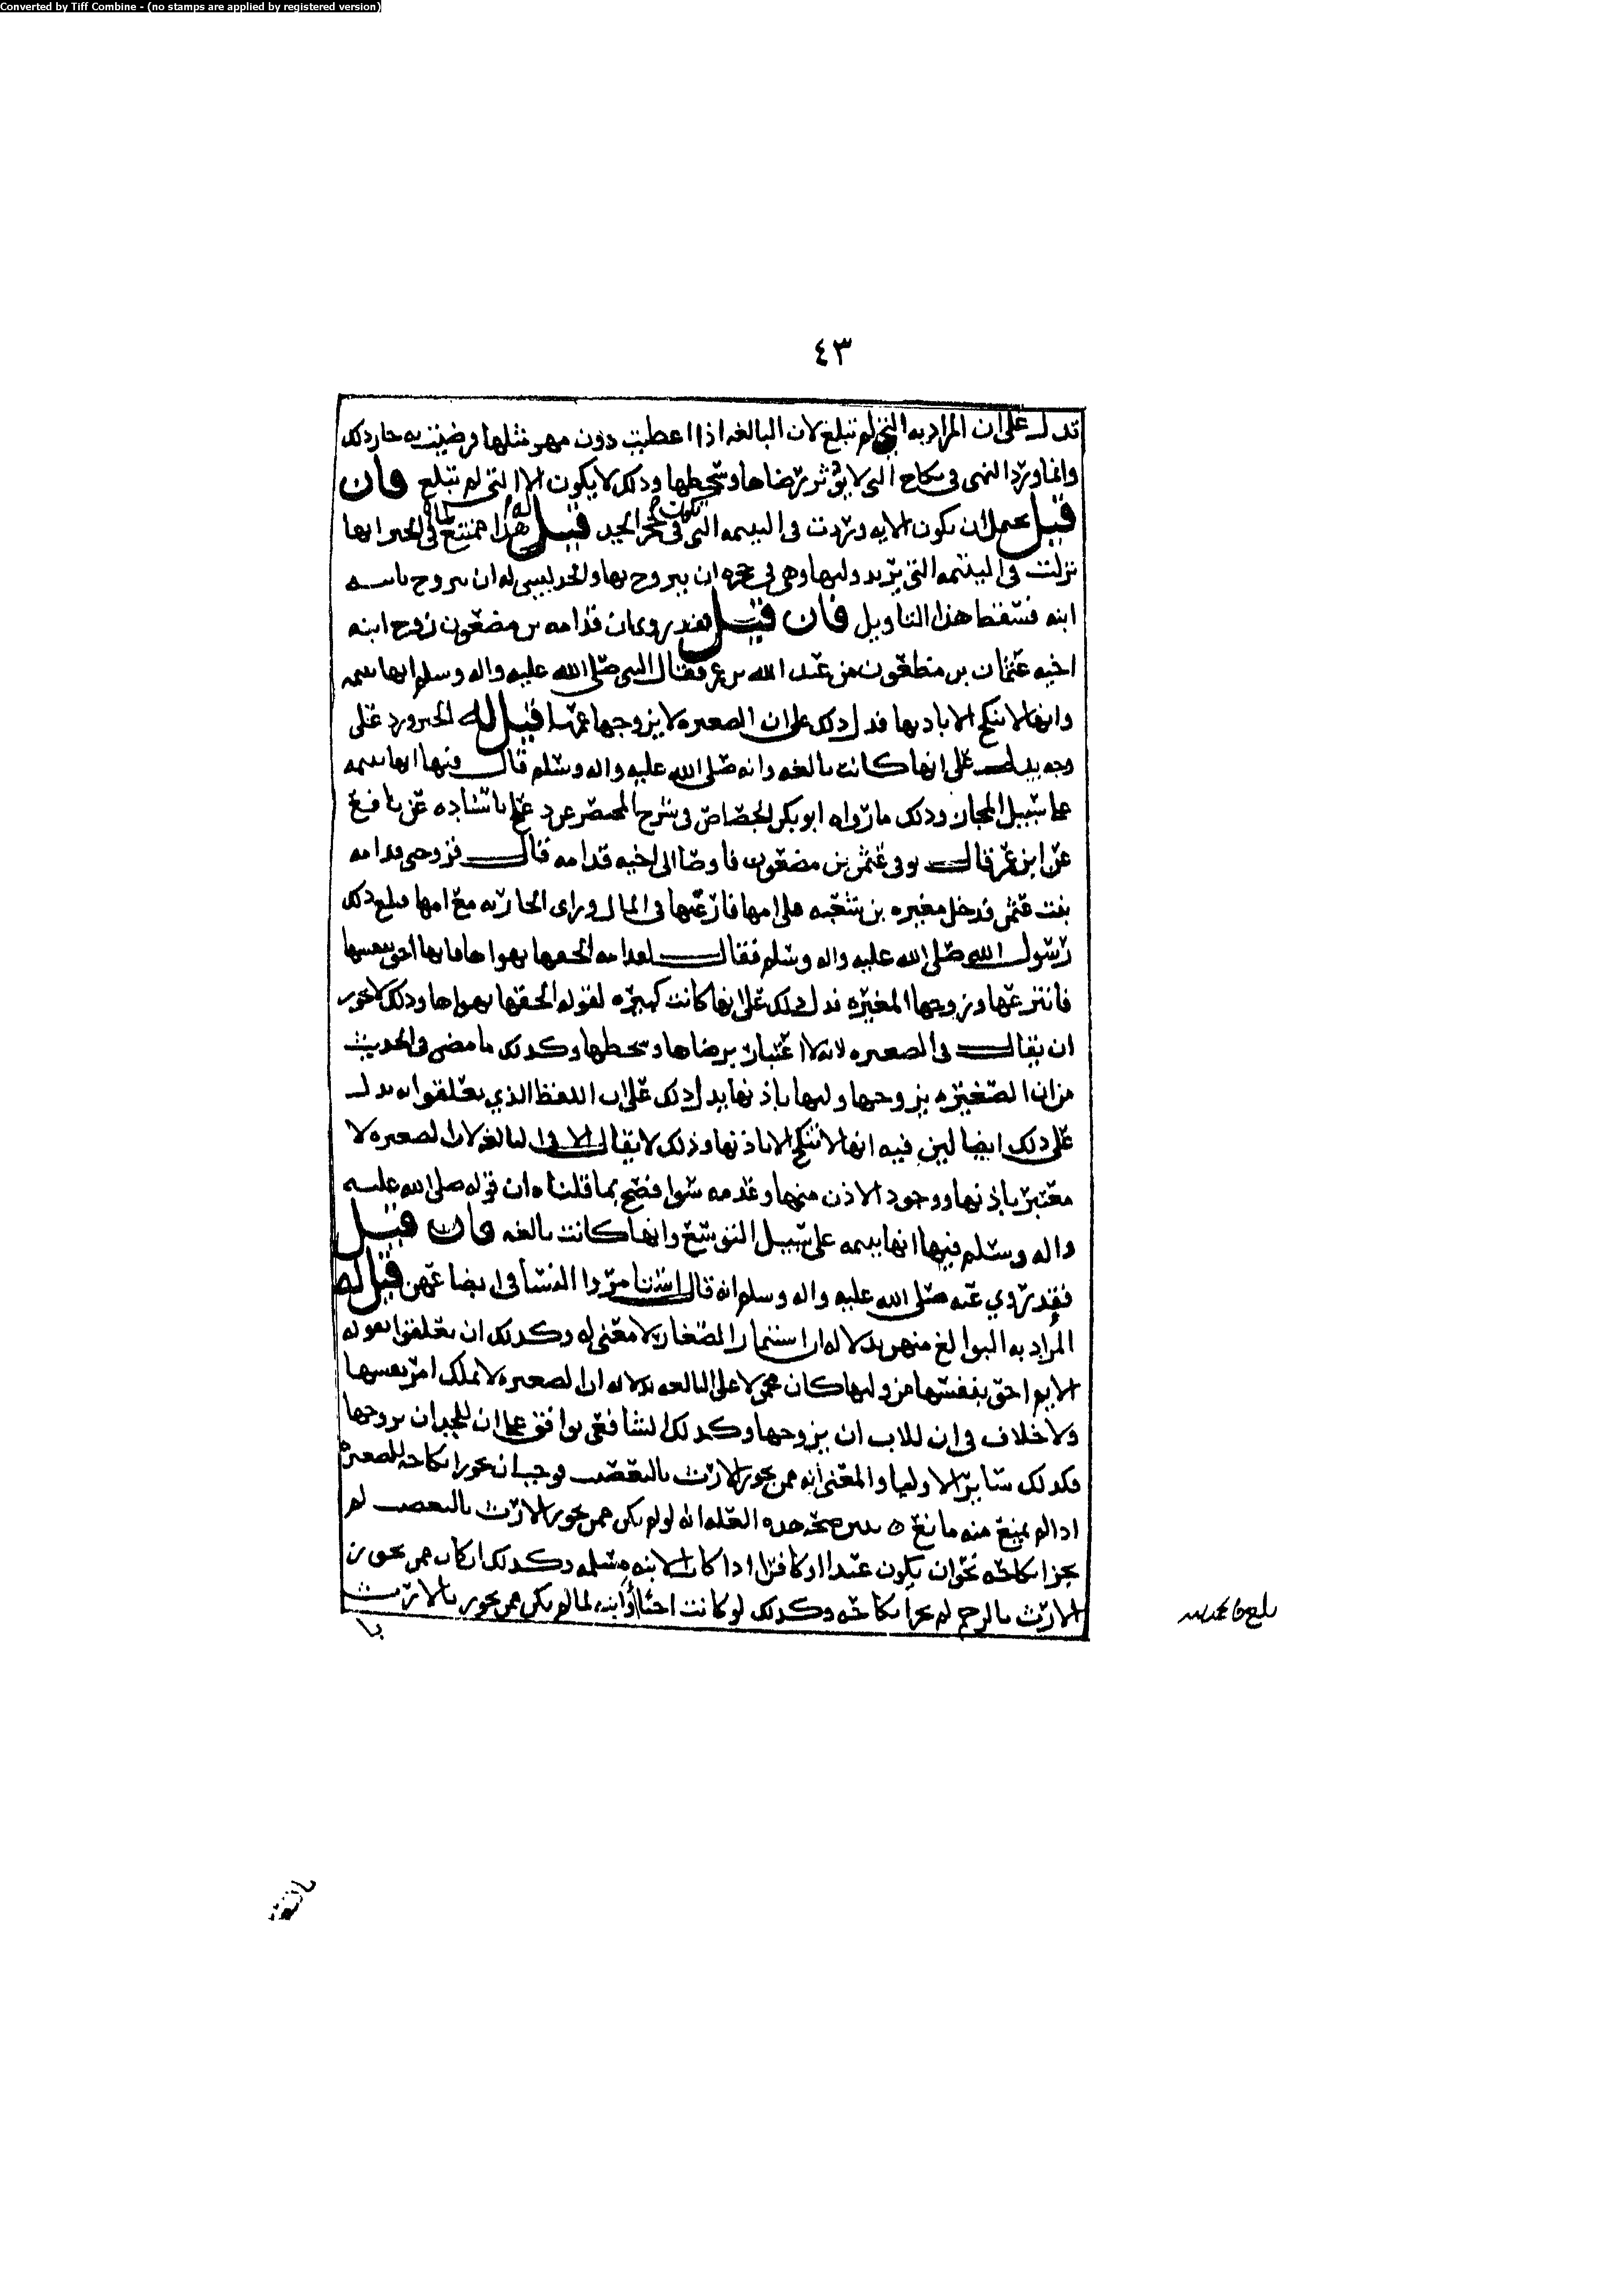 Converted by Tiff Combine - (no stamps are applied by registered version)
٤٣
تدل على ان المراد به التي لم تبلغ لان البالغه اذا اعطيت دون مهر مثلها ورضيت به جاز ذلك
وانما ورد النهي في نكاح التي لا يؤثر رضاها وسخطها وذلك لا يكون الا التي لم تبلغ فان
قيل يحتمل ان يكون الايه وردت في اليتيمه التي تكون في حجر الجد قيل له هذا ممتنع لما في الخبر انها
نزلت في اليتيمه التي يريد وليها وهي في حجره ان يتزوج بها والجد ليس له ان يتزوج بابنه
ابنه فسقط هذا التاويل فان قيل فقد روي ان قدامه بن مضعون زوج ابنه
اخيه عثمان بن مظعون من عبد الله بن عمر فقال النبي صلى الله عليه واله وسلم انها يتيمه
وانها لا تنكح الا باذنها فدل ذلك على ان الصغيره لا يزوجها عمها قيل له الخبر ورد على
وجه يدل على انها كانت بالغه وانه صلى الله عليه واله وسلم قال فيها انها يتيمه
على سبيل المجاز وذلك ما رواه ابو بكر الجصاص في شرح المختصر باسناده عن نافع
عن ابن عمر قال توفي عثمن بن مضعون فاوصا الى اخيه قدامه قال فزوجني قدامه
بنت عثمن فدخل مغيره بن شعبه على امها فارغبها في المال وراى الجاريه مع امها فبلغ ذلك
رسول الله صلى الله عليه واله وسلم فقال لقدامه الحقها بهواها فانها احق بنفسها
فانتزعها وزوجها المغيره فدل ذلك على انها كانت كبيره لقوله الحقها بهواها وذلك لا يجوز
ان يقال في الصغيره لانه لا اعتبار برضاها وسخطها وكذلك ما مضى في الحديث
من ان الصغيره يزوجها وليها باذنها يدل ذلك على ان اللفظ الذي تعلقوا به يدل
على ذلك ايضا لين فيه انها لا تنكح الا باذنها وذلك لا يقال الا في البالغه لان الصغيره لا
معتبر باذنها ووجود الاذن منها وعدمه سوا فصح بما قلناه ان قوله صلى الله عليه
واله وسلم فيها انها يتيمه على سبيل التوسع وانها كانت بالغه فان قيل
فقد روي عنه صلى الله عليه واله وسلم انه قال استامروا النسا في ابضاعهن قيل له
المراد به البوالغ منهن بدلاله ان استثمار الصغار لا معنى له وكذلك ان تعلقوا بقوله
الايم احق بنفسها من وليها كان محمولا على البالغه بدلاله ان الصغيره لا تملك امر نفسها
ولا خلاف في ان للاب ان يزوجها وكذلك الشافعي يوافق على ان للجد ان يزوجها
فكذلك سائر الاوليا والمعنى انه ممن يحوز الارث بالتعصب فوجب ان يجوز انكاحه للصغيره
اذا لم يمنع منه مانع ه يبين صحه هذه العله انه لو لم يكن ممن يحوز الارث بالتعصب لم
يجز انكاحه نحو ان يكون عبدا او كافرا اذا كانت الابنه مسلمه وكذلك ان كان ممن يحوز
الارث بالرحم لم يجز انكاحه وكذلك لو كانت اختا او ابنه لما لم يكن ممن يحوز بالارث
با